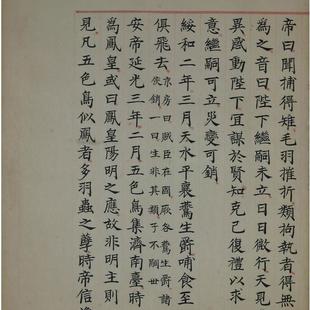 帝曰聞捕得雉毛羽摧折類拘執者得無
為之音曰陛下繼嗣未立日日微行天見
異感動陛下宜謀於賢知克己復禮以求
意繼嗣可立災變可銷
綏和二年三月天水平襄鷰生爵哺食至
俱飛去京房曰賊臣在國厥咎鷰生爵諸
侯銷一曰生非其類子不嗣世
安帝延光三年二月五色鳥集濟南臺時
為鳳皇或曰鳳皇陽明之應故非明主則
見凡五色鳥似鳳者多羽蟲之孽時帝信